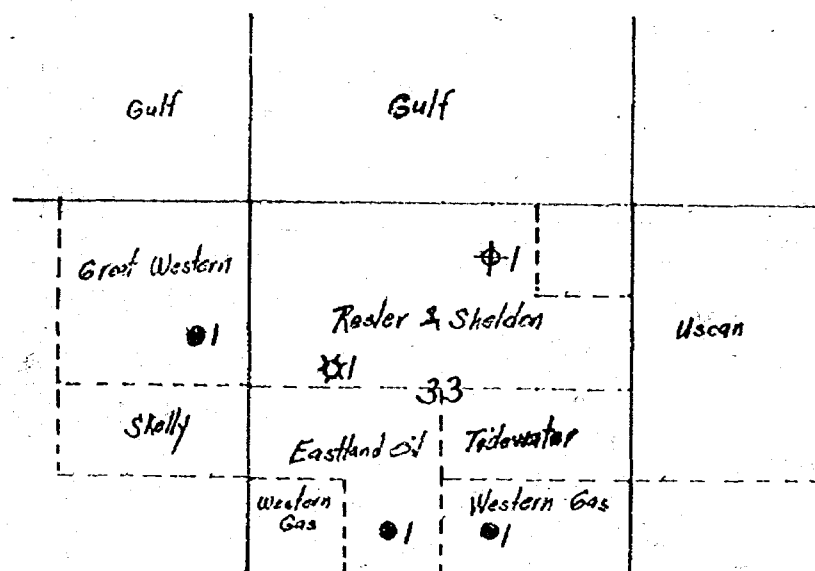 Gulf
Gulf
1
Great Western
Resler & Sheldon
Uscan
1
1
33
Skelly
Eastland Oil
Tidewater
Western
Gas
Western Gas
1
1